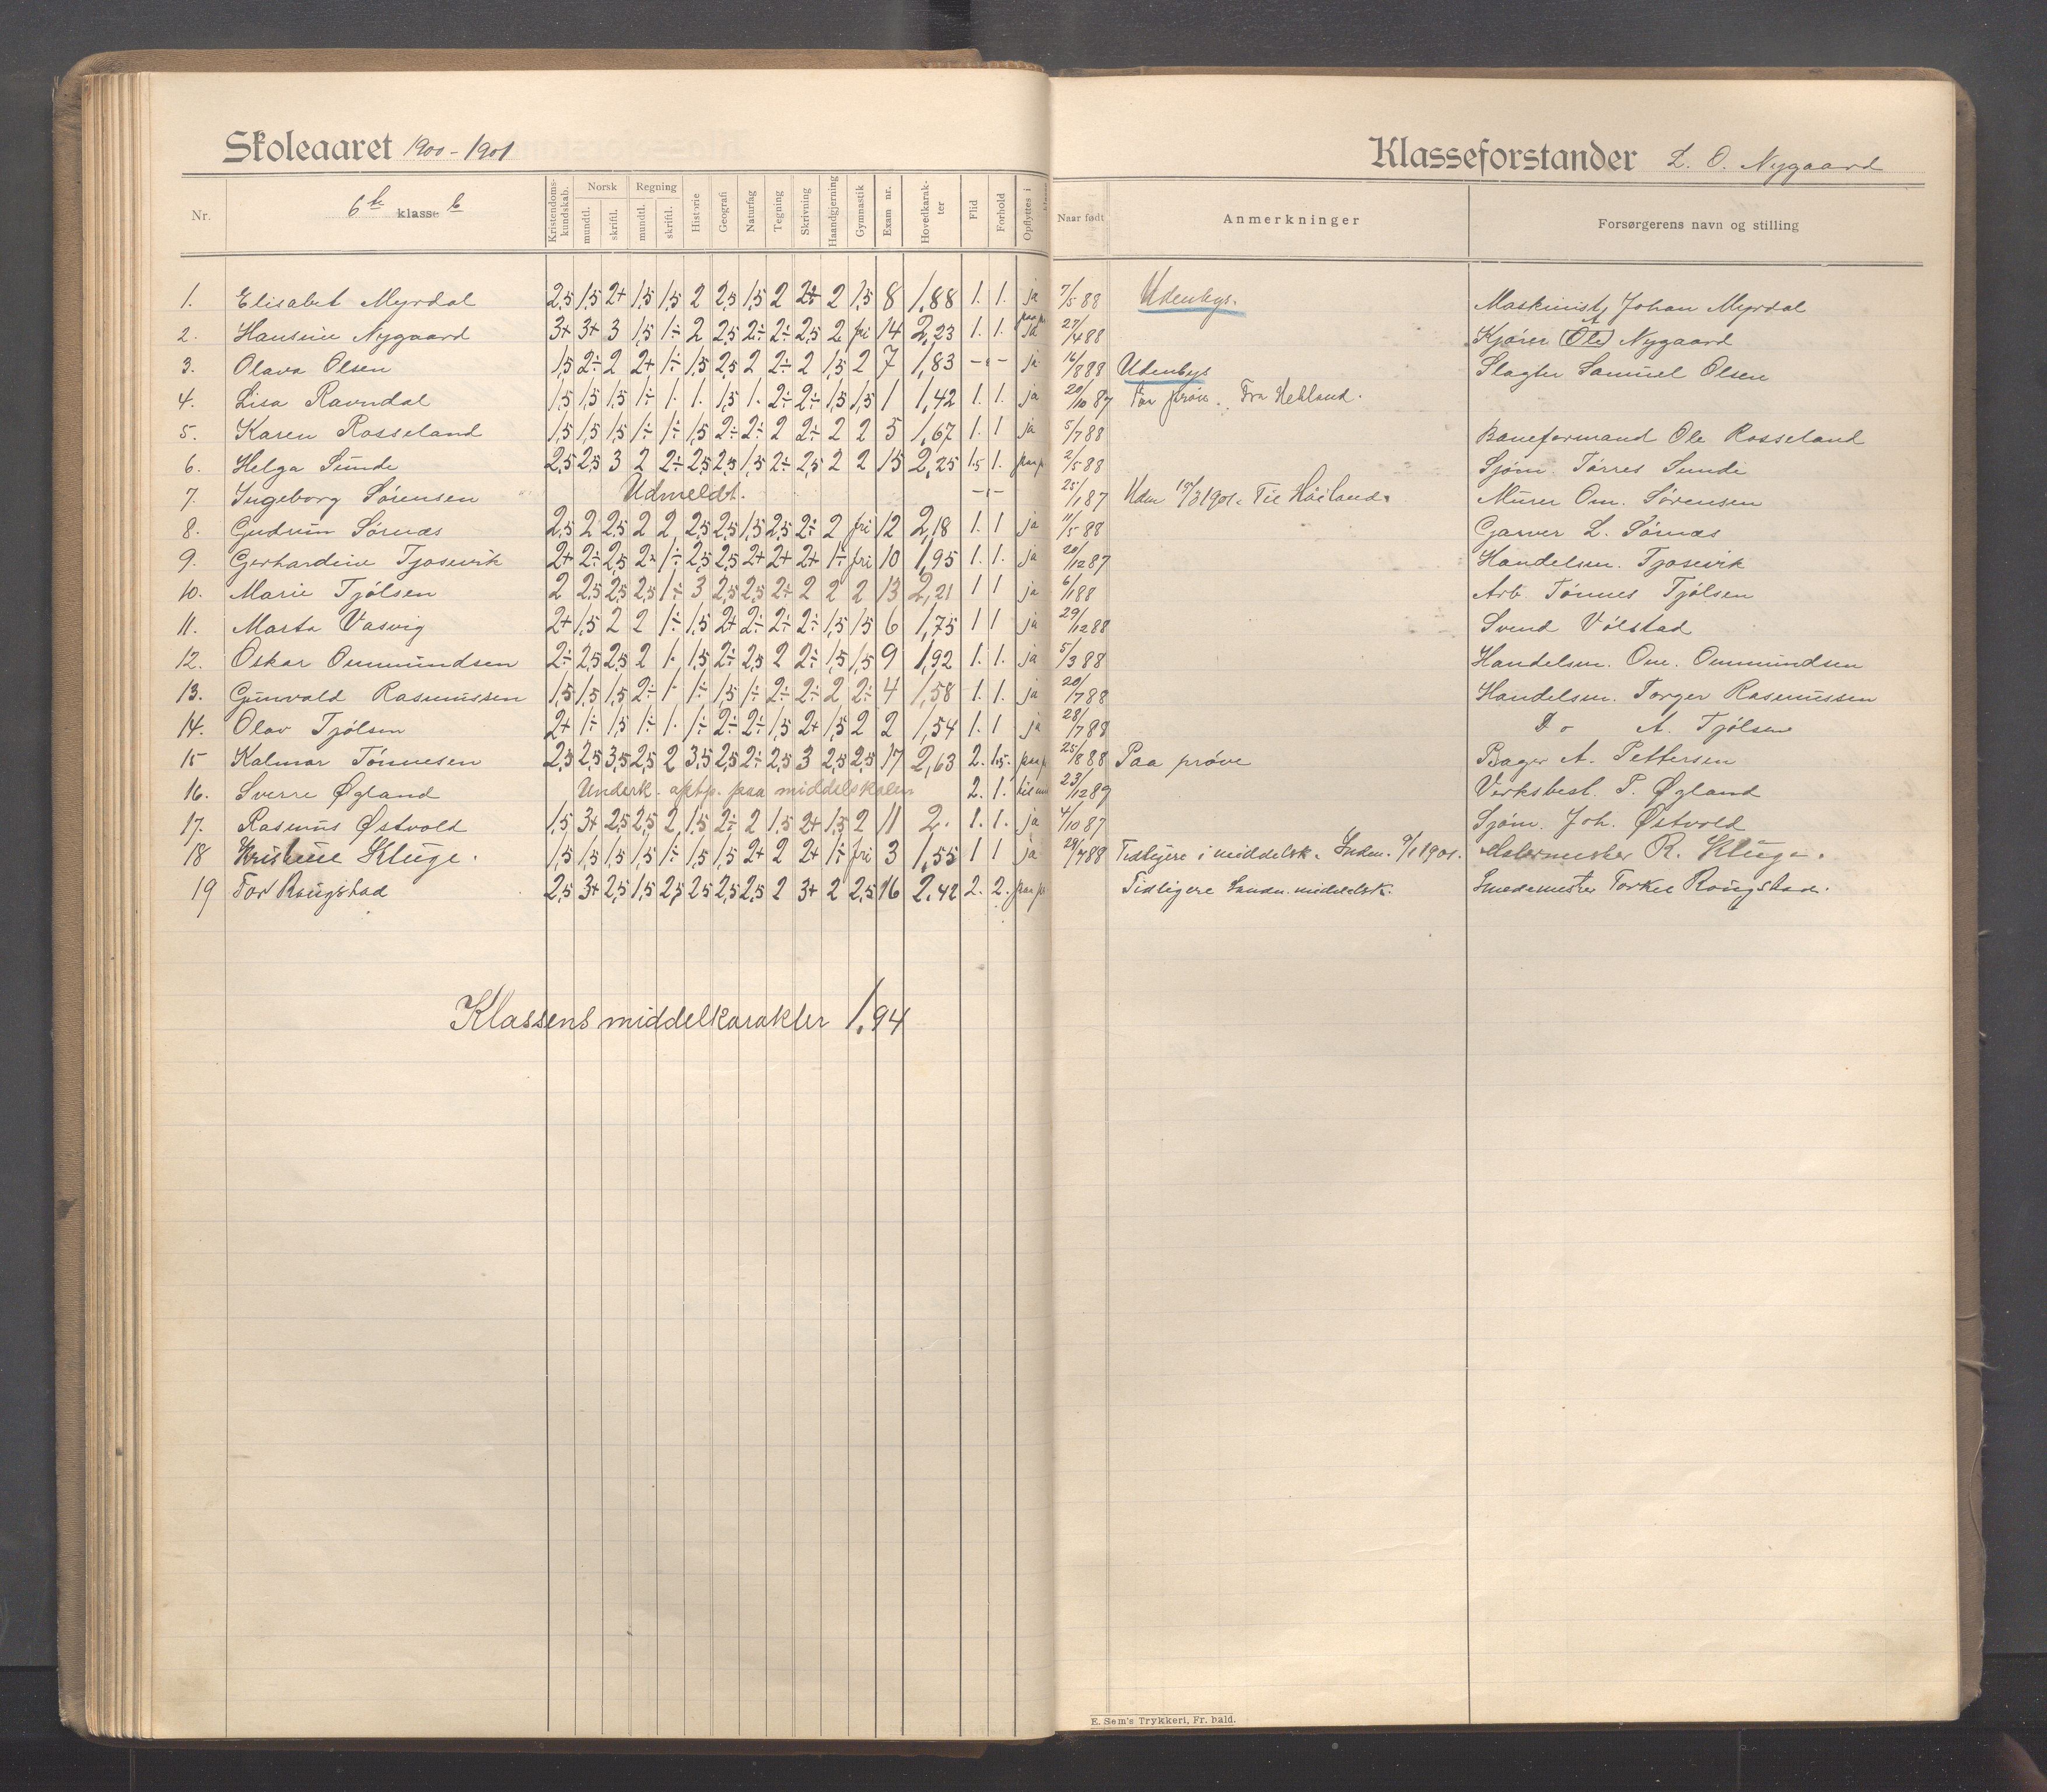 Skoleaaret 1900-1901
Klasseforstander L. O. Nygaard
Nr. 6te klasse b Kristendomskundskab. Norsk mundtl. skriftl. Regning mundtl. skriftl. Historie Geografi Naturfag Tegning Skrivning Haandgjerning Gymnastik Exam nr. Hovedkarakter Flid Forhold Opflyttes i klasse Naar født Anmerkninger Forsørgerens navn og stilling
1. Elisabet Myrdal 2,5 1,5 2+ 1,5 1,5 2 2,5 1,5 2 2+ 2 1,5 8 1,88 1. 1. ja 7/5 88 Udenbys. Maskinist Johan Myrdal
2. Hansine Nygaard 3+ 3+ 3 1,5 1÷ 2 2,5 2÷ 2÷ 2,5 2 fri 14 2,23 1. 1. ja 27/4 88 Kjører Ole Nygaard
3. Olava Olsen 1,5 2÷ 2 2+ 1÷ 1,5 2,5 2 2÷ 2 1,5 2 7 1,83 -"- ja 16/8 88 Udenbys Slagter Samuel Olsen
4. Lisa Ravndal 1,5 1,5 1,5 1÷ 1. 1. 1,5 1. 2÷ 2÷ 1,5 1,5 1 1,42 1. 1. ja 20/10 87 Paa prøve. Fra Hetland.
5. Karen Rosseland 1,5 1,5 1,5 1÷ 1÷ 1,5 2÷ 2÷ 2 2÷ 2 2 5 1,67 1. 1 ja 5/7 88 Baneformand Ole Rosseland
6. Helga Sunde 2,5 2,5 3 2 2÷ 2,5 2,5 1,5 2÷ 2,5 2 2 15 2,25 1.5 1. paa p 2/5 88 Sjøm. Tørres Sunde
7. Ingeborg Sørensen Udmeldt. -"- 25/1 87 Udm 15/3 1901. Til Høiland. Murer Om. Sørensen
8. Gudrun Sørnæs 2,5 2 2,5 2 2 2,5 2,5 1,5 2,5 2÷ 2 fri 12 2,18 1. 1 ja 11/5 88 Garver L. Sørnæs
9. Gerhardine Tjosevik 2+ 2÷ 2,5 2÷ 1÷ 2,5 2,5 2+ 2+ 2+ 1÷ fri 10 1,95 1. 1. ja 20/12 87 Handelsm. Tjosevik
10. Marie Tjølsen 2 2,5 2,5 2,5 1÷ 3 2,5 2,5 2+ 2 2 2 13 2,21 1 1 ja 6/1 88 Arb. Tønnes Tjølsen
11. Marta Vasvig 2+ 1,5 2 2 1÷ 1,5 2+ 2÷ 2÷ 2÷ 1,5 1,5 6 1,75 1 1 ja 29/12 88 Svend Vølstad
12. Oskar Ommundsen 2÷ 2,5 2,5 2 1. 1,5 2÷ 2,5 2 2÷ 1,5 1,5 9 1,92 1. 1. ja 5/3 88 Handelsm. Om. Ommundsen
13. Gunvald Rasmussen 1,5 1,5 1,5 2÷ 1. 1÷ 1,5 1÷ 2÷ 2÷ 2 2÷ 4 1,58 1. 1. ja 20/7 88 Handelsm. Torger Rasmussen
14. Olav Tjølsen 2+ 1÷ 1,5 1÷ 1. 1÷ 2÷ 2÷ 1,5 2+ 1,5 2 2 1,54 1. 1 ja 28/7 88 Do A. Tjølsen
15 Kalmar Tønnesen 2,5 2,5 3,5 2,5 2 3,5 2,5 2÷ 2,5 3 2,5 2,5 17 2,63 2. 1.5. paa p 25/8 88 Paa prøve Bager A. Pettersen
16. Sverre Øgland Underk. optp. paa middelskolen 2. 1. 23/12 89 Verksbest. P. Øgland
17. Rasmus Østvold 1,5 3+ 2,5 2,5 2 1,5 2÷ 2 1,5 2+ 1,5 2 11 2. 1. 1. ja 4/10 87 Sjøm. Joh. Østvold
18 Kristine Kluge. 1,5 1,5 1,5 1,5 1÷ 1,5 1,5 2+ 2 2+ 1÷ fri 3 1,55 1 1 ja 29/7 88 Tidligere i middelsk. Indm. 9/1 1901. Malermester R. Kluge.
19 Tor Rougstad 2,5 3+ 2,5 1,5 2,5 2,5 2,5 2,5 2 3+ 2 2,5 16 2.42 2. 2. paa p Tidligere Sandn. middelsk. Smedemester Torkel Rougstad.
Klassens middelkarakter 1.94
E. Sem's Trykkeri, Fr. hald.